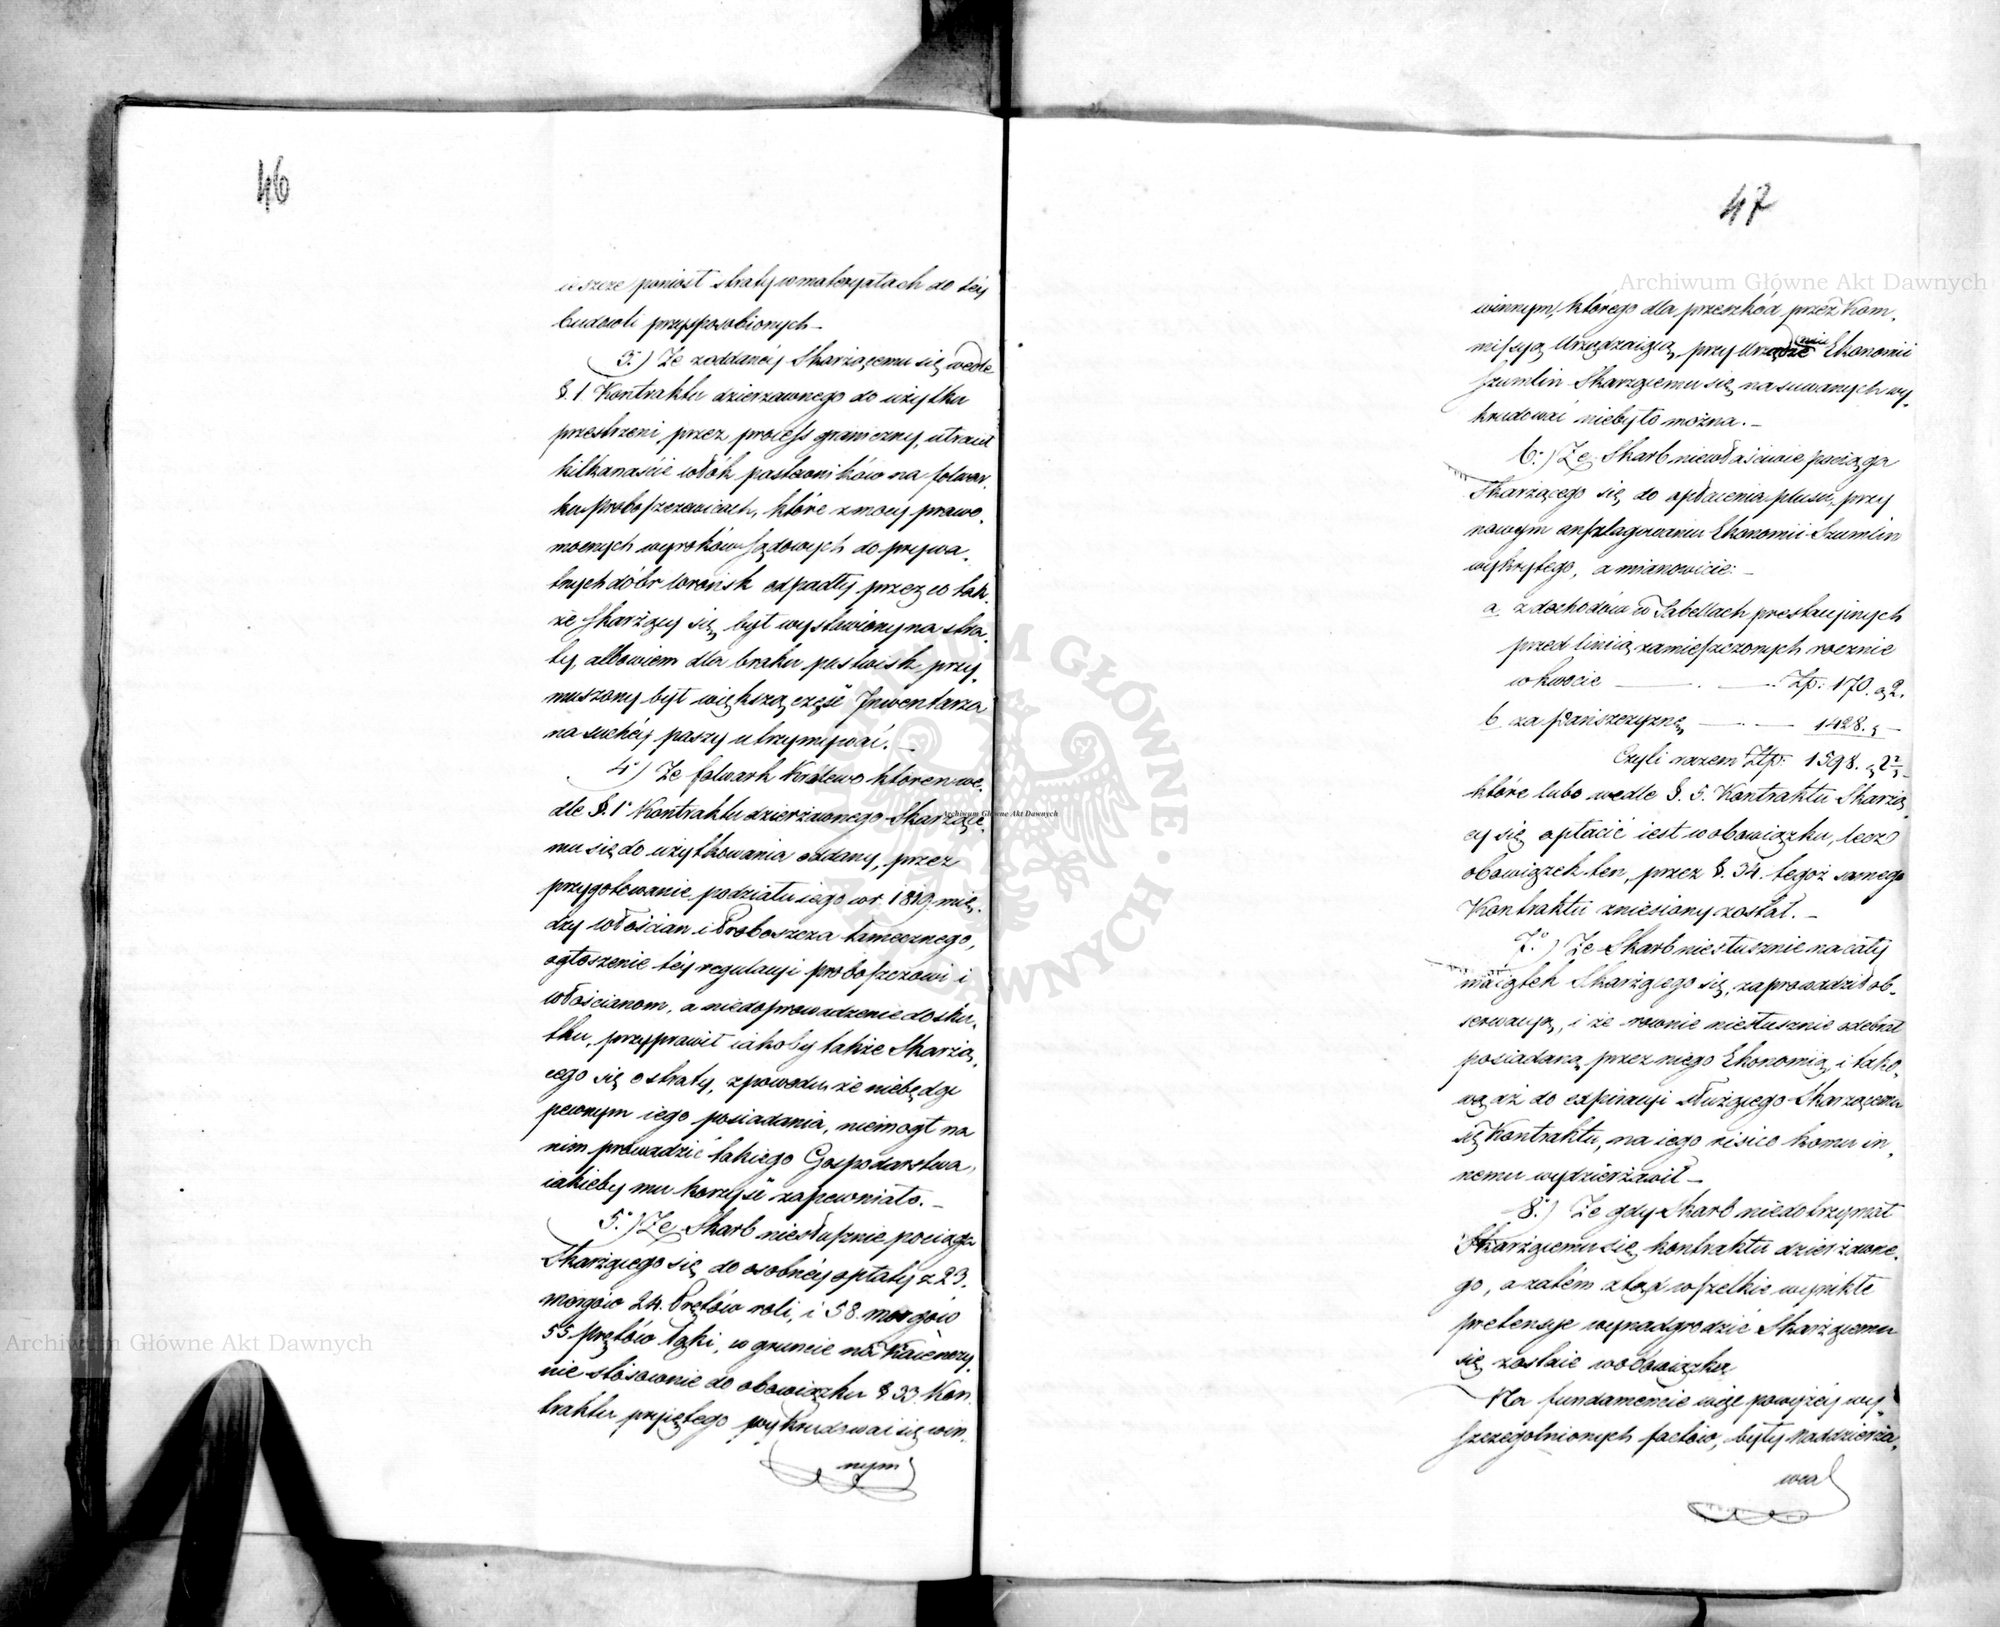 46
ieszcze poniósł straty w materyałach do téy
budowli przysposobionych –
3.) Że z oddanéy Skarżącemu się wedle
§. 1 Kontraktu dzierzawnego do użytku
przestrzeni, przez process graniczny, utracił
kilkanaście włók pastwników na folwar.
ku Proboszczewicach, które z mocy prawo.
mocnych wyroków Sądowych do prywa.
tnych dóbr Wrońsk odpadły przez co tak.
że Skarżący się, był wystawiony na stra.
ty, albowiem dla braku pastwisk, przy.
muszony był większą część Inwentarza
na suchéy paszy utrzymywać. –
4°) Że folwark Królewo któren we.
dle §. 1° Kontraktu dzierżawnego Skarżące.
mu się do użytkowania oddany, przez
przygotowanie podziału iego w r. 1819 mię.
dzy włościan i Proboszcza tamecznego,
ogłoszenie téy regulacyi proboszczowi i
włościanom, a niedoprowadzenie do sku.
tku, przyprawił iakoby także Skarżą.
cego się o straty, z powodu że niebędąc
pewnym iego posiadania, niemógł na
nim prowadzić takiego Gospodarstwa,
iakieby mu korzyść zapewniało. –
5.°) Że Skarb niesłusznie pociąga
Skarżącego się do osobnéy opłaty z 23.
morgów 24. Prętów roli, i 58. morgów
55 prętów łąki, w gruncie na
nie stósownie do obowiązku § 33. Kon.
traktu przyiętego wykrudować się win.
nym
47
winnym, którego dla przeszkód przez Kom.
missyą Urządzaiącą, przy Ekonomii
Szumlin Skarżącemu się nasuwanych wy.
krudować niebyło można. –
6.) Że Skarb niewłaściwie pociąga
Skarżącego się do opłacenia plusu, przy
nowym anszlagowaniu Ekonomii Szumlin
wykrytego, a mianowicie: –
a z dochodów w Tabellach prestacyinych
przed linią zamieszczonych rocznie
w kwocie — . — . Złp: 170. g 2.
b za Pańszczyznę — . — 1428. „ –
Czyli razem Złp: 1598. g 2
które lubo wedle §. 5. Kontraktu Skarżą
cy się opłacić iest w obowiązku, lecz
obowiązek ten, przez §. 34. tegoż samego
Kontraktu zniesiony został. –
7.°) Że Skarb niesłusznie na cały
maiątek Skarżącego się, zaprowadził ob.
serwacyą, i że rownie niesłusznie odebrał
posiadaną przez niego Ekonomią, i tako.
wą aż do expiracyi służącego Skarżącemu
się Kontraktu, na iego risico komu in.
nemu wydzierżawił –
8.°) Że gdy Skarb niedotrzymał
Skarżącemu się kontraktu dzierżawne.
go, a zatém ztąd wszelkie wynikłe
pretensye wynadgrodzić Skarżącemu
się zostaie w obowiązku
Na fundamencie więc powyżéy wy.
szczególnionych factów, były Naddzierża.
wca
Archiwum Główne Akt Dawnych
Archiwum Główne Akt Dawnych
Archiwum Główne Akt Dawnych
ARCHIWUM GŁÓWNE AKT DAWNYCH